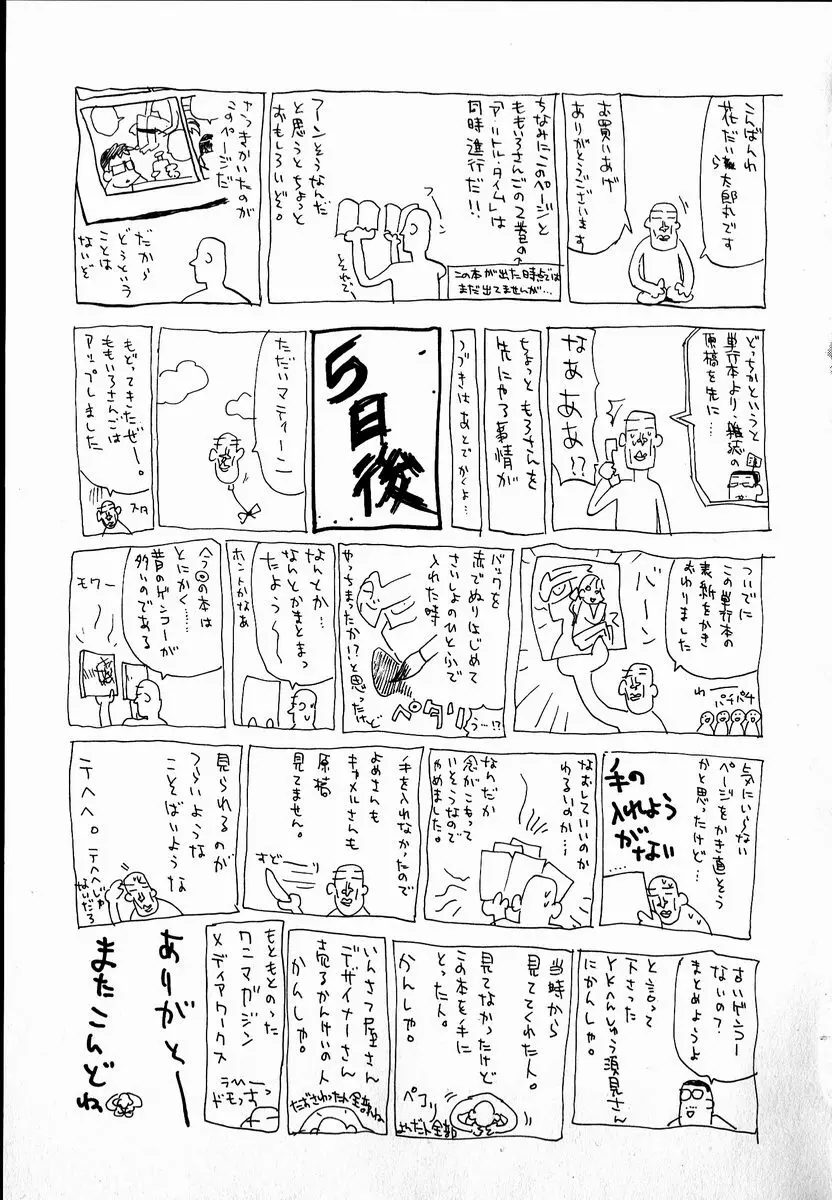 こんばんわ
花だいら雄太郎丸です
お買いあげ
ありがとうございます
ちなみにこのページと
ももいろさんごの2巻の
「アルトル・タイム」は
同時進行だ!!
この本が出た時点では
まだ出てませんが…
フーン
フーンそうなんだ
と思うとちょっと
おもしろいぞ。
それで、
さっきかいたのが
このページだ
だから
どうという
ことは
ないぞ
どっちかというと
単行本より、雑誌の
原稿を先に…
なぁああ!?
ちょっとももさんを
先にやる事情が
つづきはあとでかくよ…
5日後
ただいマティーン
もどってきたぜー。
ももいろさんごは
アップしました
スタ
ついでに
この単行本の
表紙をかき
おわりました
バーン
わー
パチパチ
バックを
赤でぬりはじめて
さいしょのひとふで
入れた時
ペタリ
う…!?
やっちまったか!?と思ったけど
なんとか…
なんとかまとまっ
たよう〜
ホントかなあ
今回の本は
とにかく……
昔のゲンコーが
多いのである
モワー
気にいらない
ページをかき直そう
かと思ったけど…
手の
入れよう
がない
…
なおしていいのか
わるいのか…
なんだか
念がこもって
いそうなので
やめました。
手を入れなかったので
よめさんも
キャメルさんも
原稿
見てません。
すどーり
見られるのが
つらいような
こそばいような
テヘヘ。
テヘヘじゃ
ないだろ
古いゲンコー
ないの?
まとめようよ
と言って
下さった
YKへんしゅう須見さん
にかんしゃ。
当時から
見ててくれた人。
見てなかったけど
この本を手に
とった人。
かんしゃ。
ペコリ
よんだ人全部
いんさつ屋さん
デザイナーさん
売るかんけいの人
かんしゃ。
たずさわった人全部ね
もともとのった
ワニマガジン
メディアワークス
ラヘー
ドモっさっ
ありがとー
またこんどね